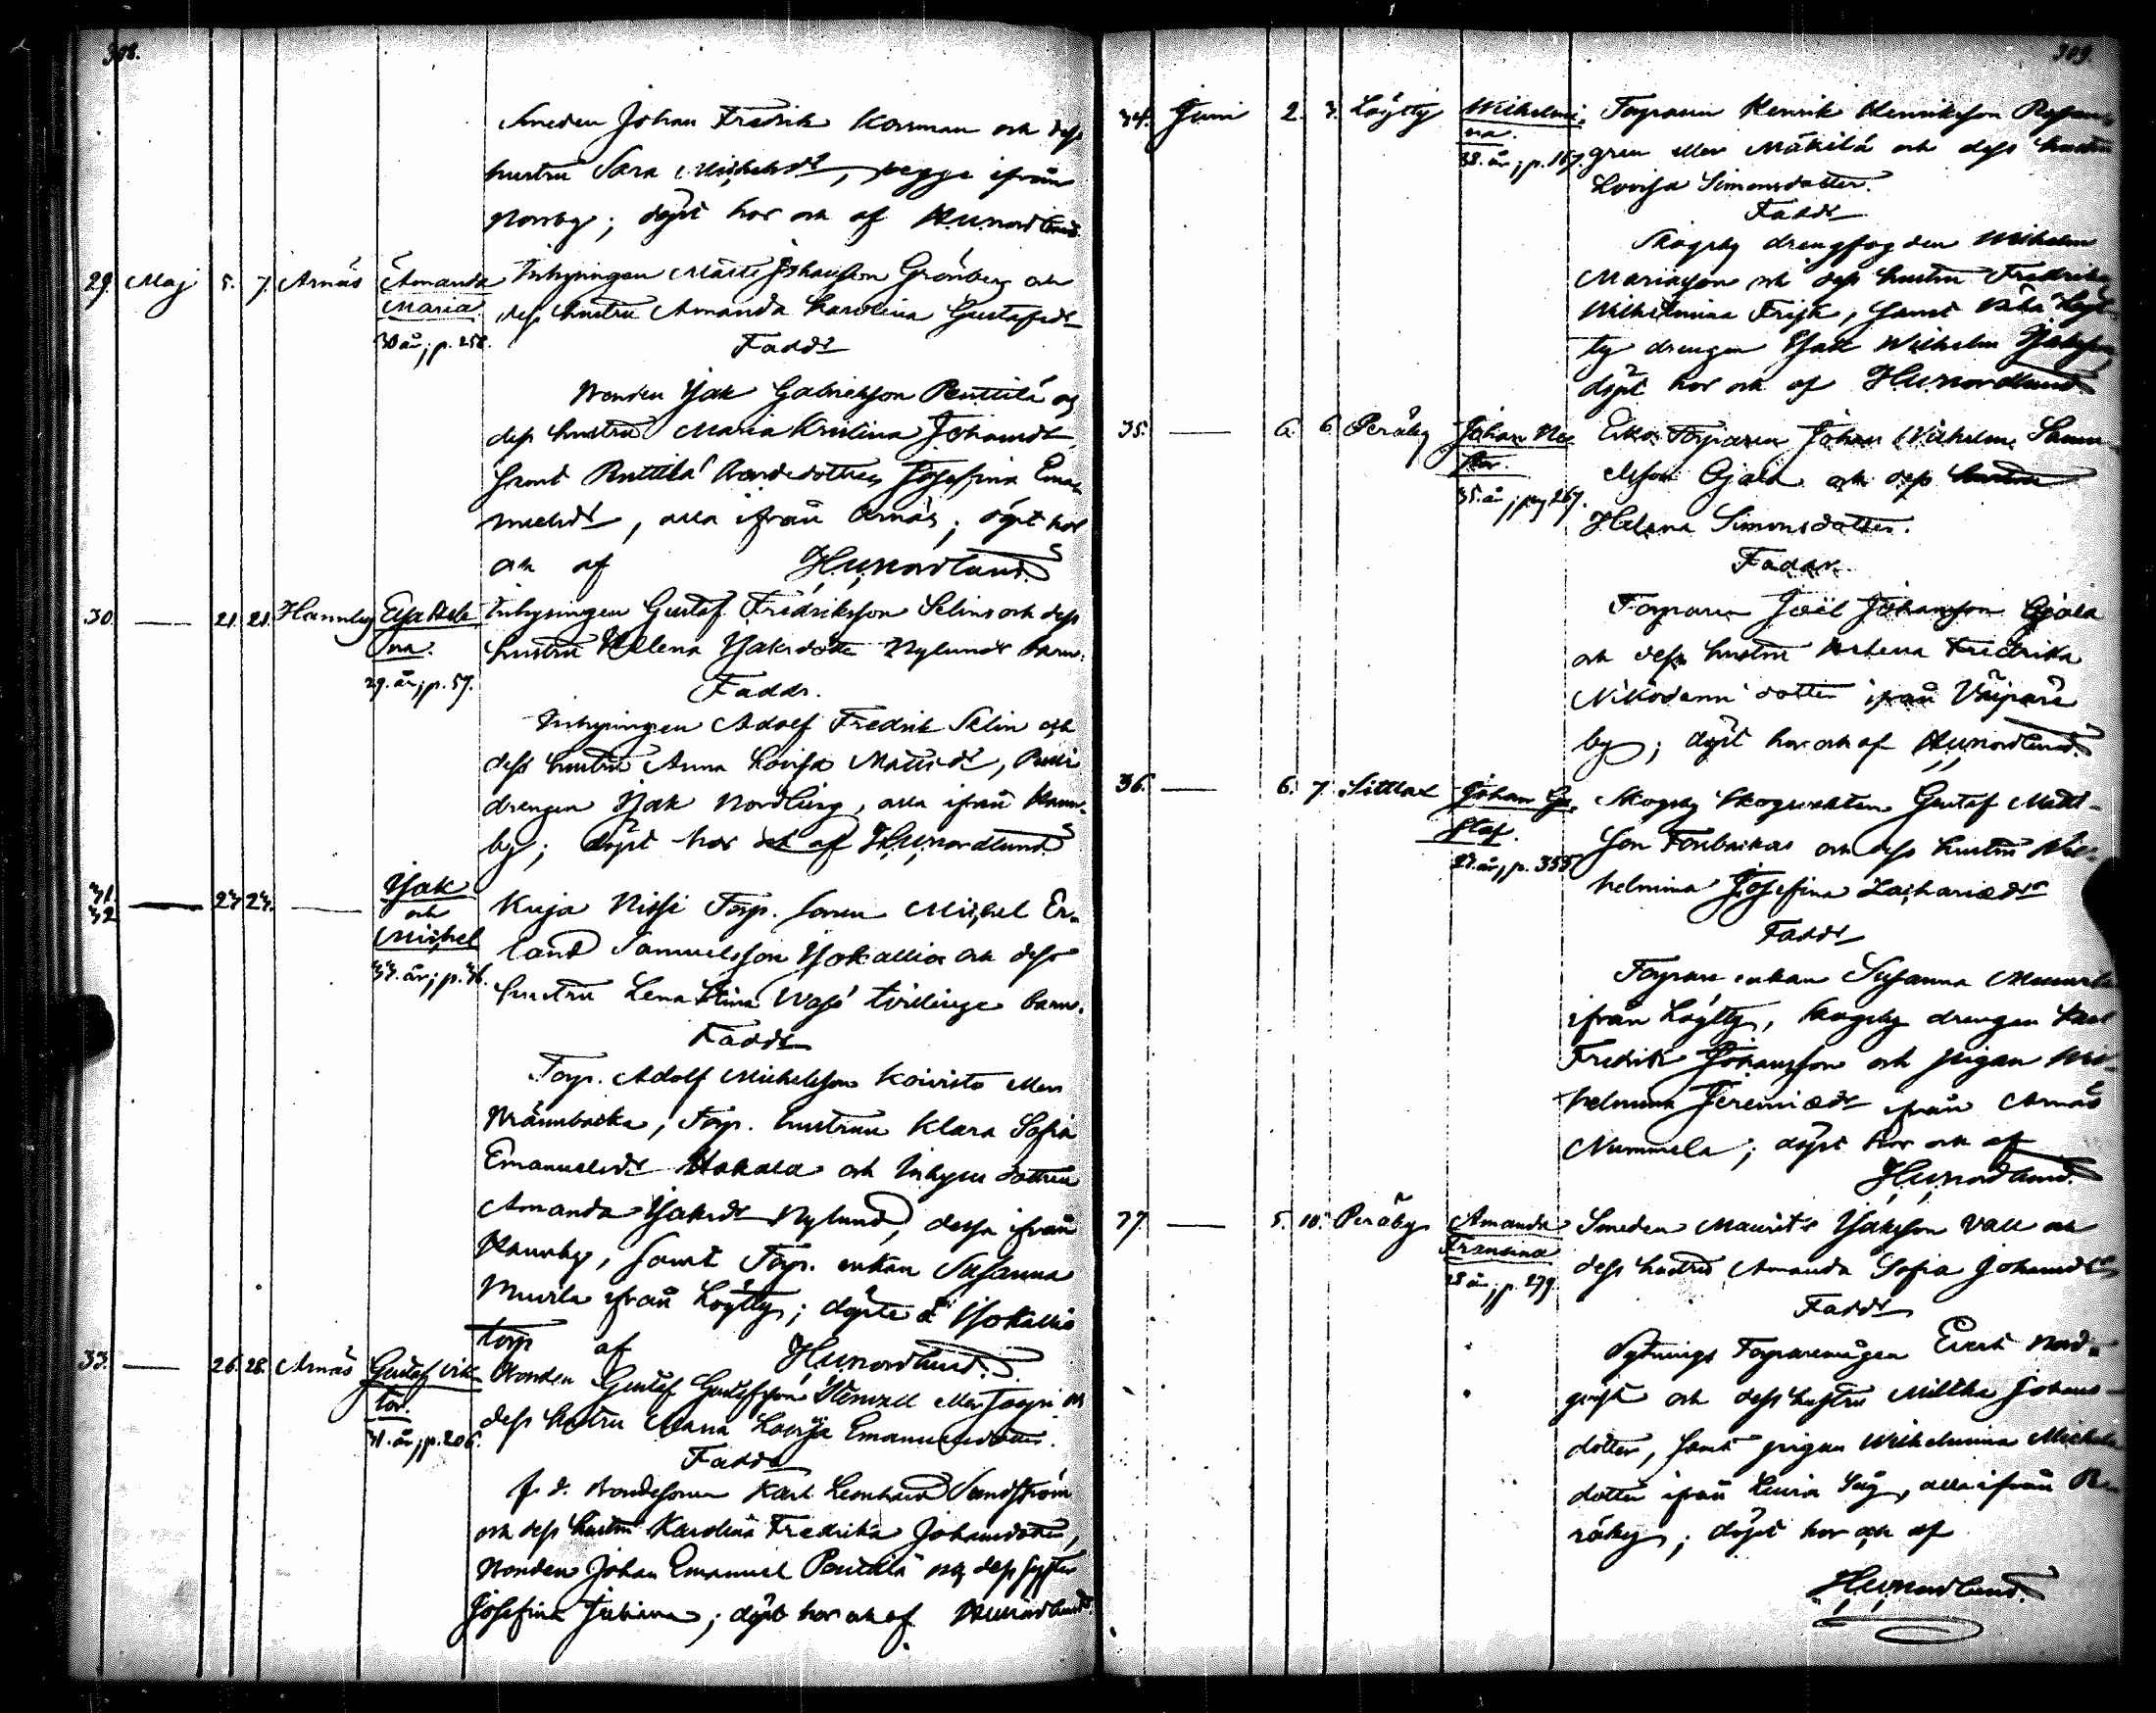 308.
Smeden Johan Fredrik Korsman och dess
hustru Sara Michelsdr, begge ifrån
Norrby; döpt hos och af HUNordlund.
29. Maj 5. 7. Arnäs Amanda Maria 30 år; p. 258.
Inhysingen Matts Johansson Grönberg och
dess hustru Amanda Karolina Gustafsdr
Faddr
Bonden Isak Gabrielsson Penttilä och
dess hustru Maria Kristina Johansdr
samt Penttilä bondedottren Josefina Ema-
nuelsdr, alla ifrån Arnäs; döpt hos
och af HUNordlund.
30. — 21. 21. Hannby Elsa Hele-
na. 29. år; p. 57.
Inhysingen Gustaf Fredriksson Selins och dess
hustru Helena Isaksdotter Nylunds barn.
Faddr.
Inhysingen Adolf Fredrik Selin och
dess hustru Anna Lovisa Mattsdr,
drengen Isak Nordling, alla ifrån Hann-
by; döpt hos och af HUNordlund.
31. 32. — 23. 23. — Isak och Michel 33. år; p. 36.
Kuja Nissi Torp. sonen Michel Er-
land Samuelsson Isokallios och dess
hustru Lena Stina tvillinge barn.
Faddr
Torp. Adolf Michelsson Koivisto eller
Brännbacka, Torp. hustrun Klara Sofia
Emanuelsdr Hakala och Inhyses dottren
Amanda Isaksdr Nylund, dessa ifrån
Hannby, samt Torp. enkan Susanna
ifrån Löytty; döpte å Isokallio
torp af HUNordlund.
33. — 26. 28. Arnäs Gustaf Vik-
tor. 31. år; p. 206.
Bonden Gustaf Gustafsson eller och
dess hustru Maria Lovisa Emanuelsdotter.
Faddr
f. d. Bondesonen Karl Leonhard Sandström
och dess hustru Karolina Fredrika Johansdotter,
Bonden Johan Emanuel Penttilä och dess syster
Josefina Juliana; döpt hos och af HUNordlund.
309.
34. Juni 2. 3. Löytty Wilhelmi-
na. 38. år; p. 167.
Torparen Henrik Henriksson
gren eller Mäkilä och dess hustru
Lovisa Simonsdotter.
Faddr
Skogsby drengfogden Wilhelm
och dess hustru Fredrika
Wilhelmina Frisk, samt Löyt-
ty drengen Isak Wilhelm Isaksson,
döpt hos och af HUNordlund.
35. — 6. 6. Peräby Johan Nes-
tor. 35. år; pag 267.
Torparen Johan Wilhelm Samu-
elsson Ojala och dess hustru
Helena Simonsdotter.
Faddr.
Torparen Joël Johansson Ojala
och dess hustru Helena Fredrika
Nikodemi dotter ifrån Vaipare
by; döpt hos och af HUNordlund.
36. — 6. 7. Sittlax Johan Gu-
staf. 27. år; p. 355
Skogsby Skogsvakten Gustaf Matts-
son och dess hustru Wil-
helmina Josefina Zachariædr
Faddr
Torpare enkan Susanna
ifrån Löytty, Skogsby drengen Karl
Fredrik Johansson och pigan Wil-
helmina Jeremiædr ifrån Arnäs
Nummela; döpt hos och af
HUNordlund.
37. — 5. 10. Peräby Amanda
Fransina 28 år; p. 279.
Smeden Maurits Isaksson Vall och
dess hustru Amanda Sofia Johansdr
Faddr
Torparemågen Evert Nord-
qvist och dess hustru Miltha Johans-
dotter, samt pigan Wilhelmina Michels
dotter ifrån såg, alla ifrån Pe-
räby; döpt hos och af
HUNordlund.